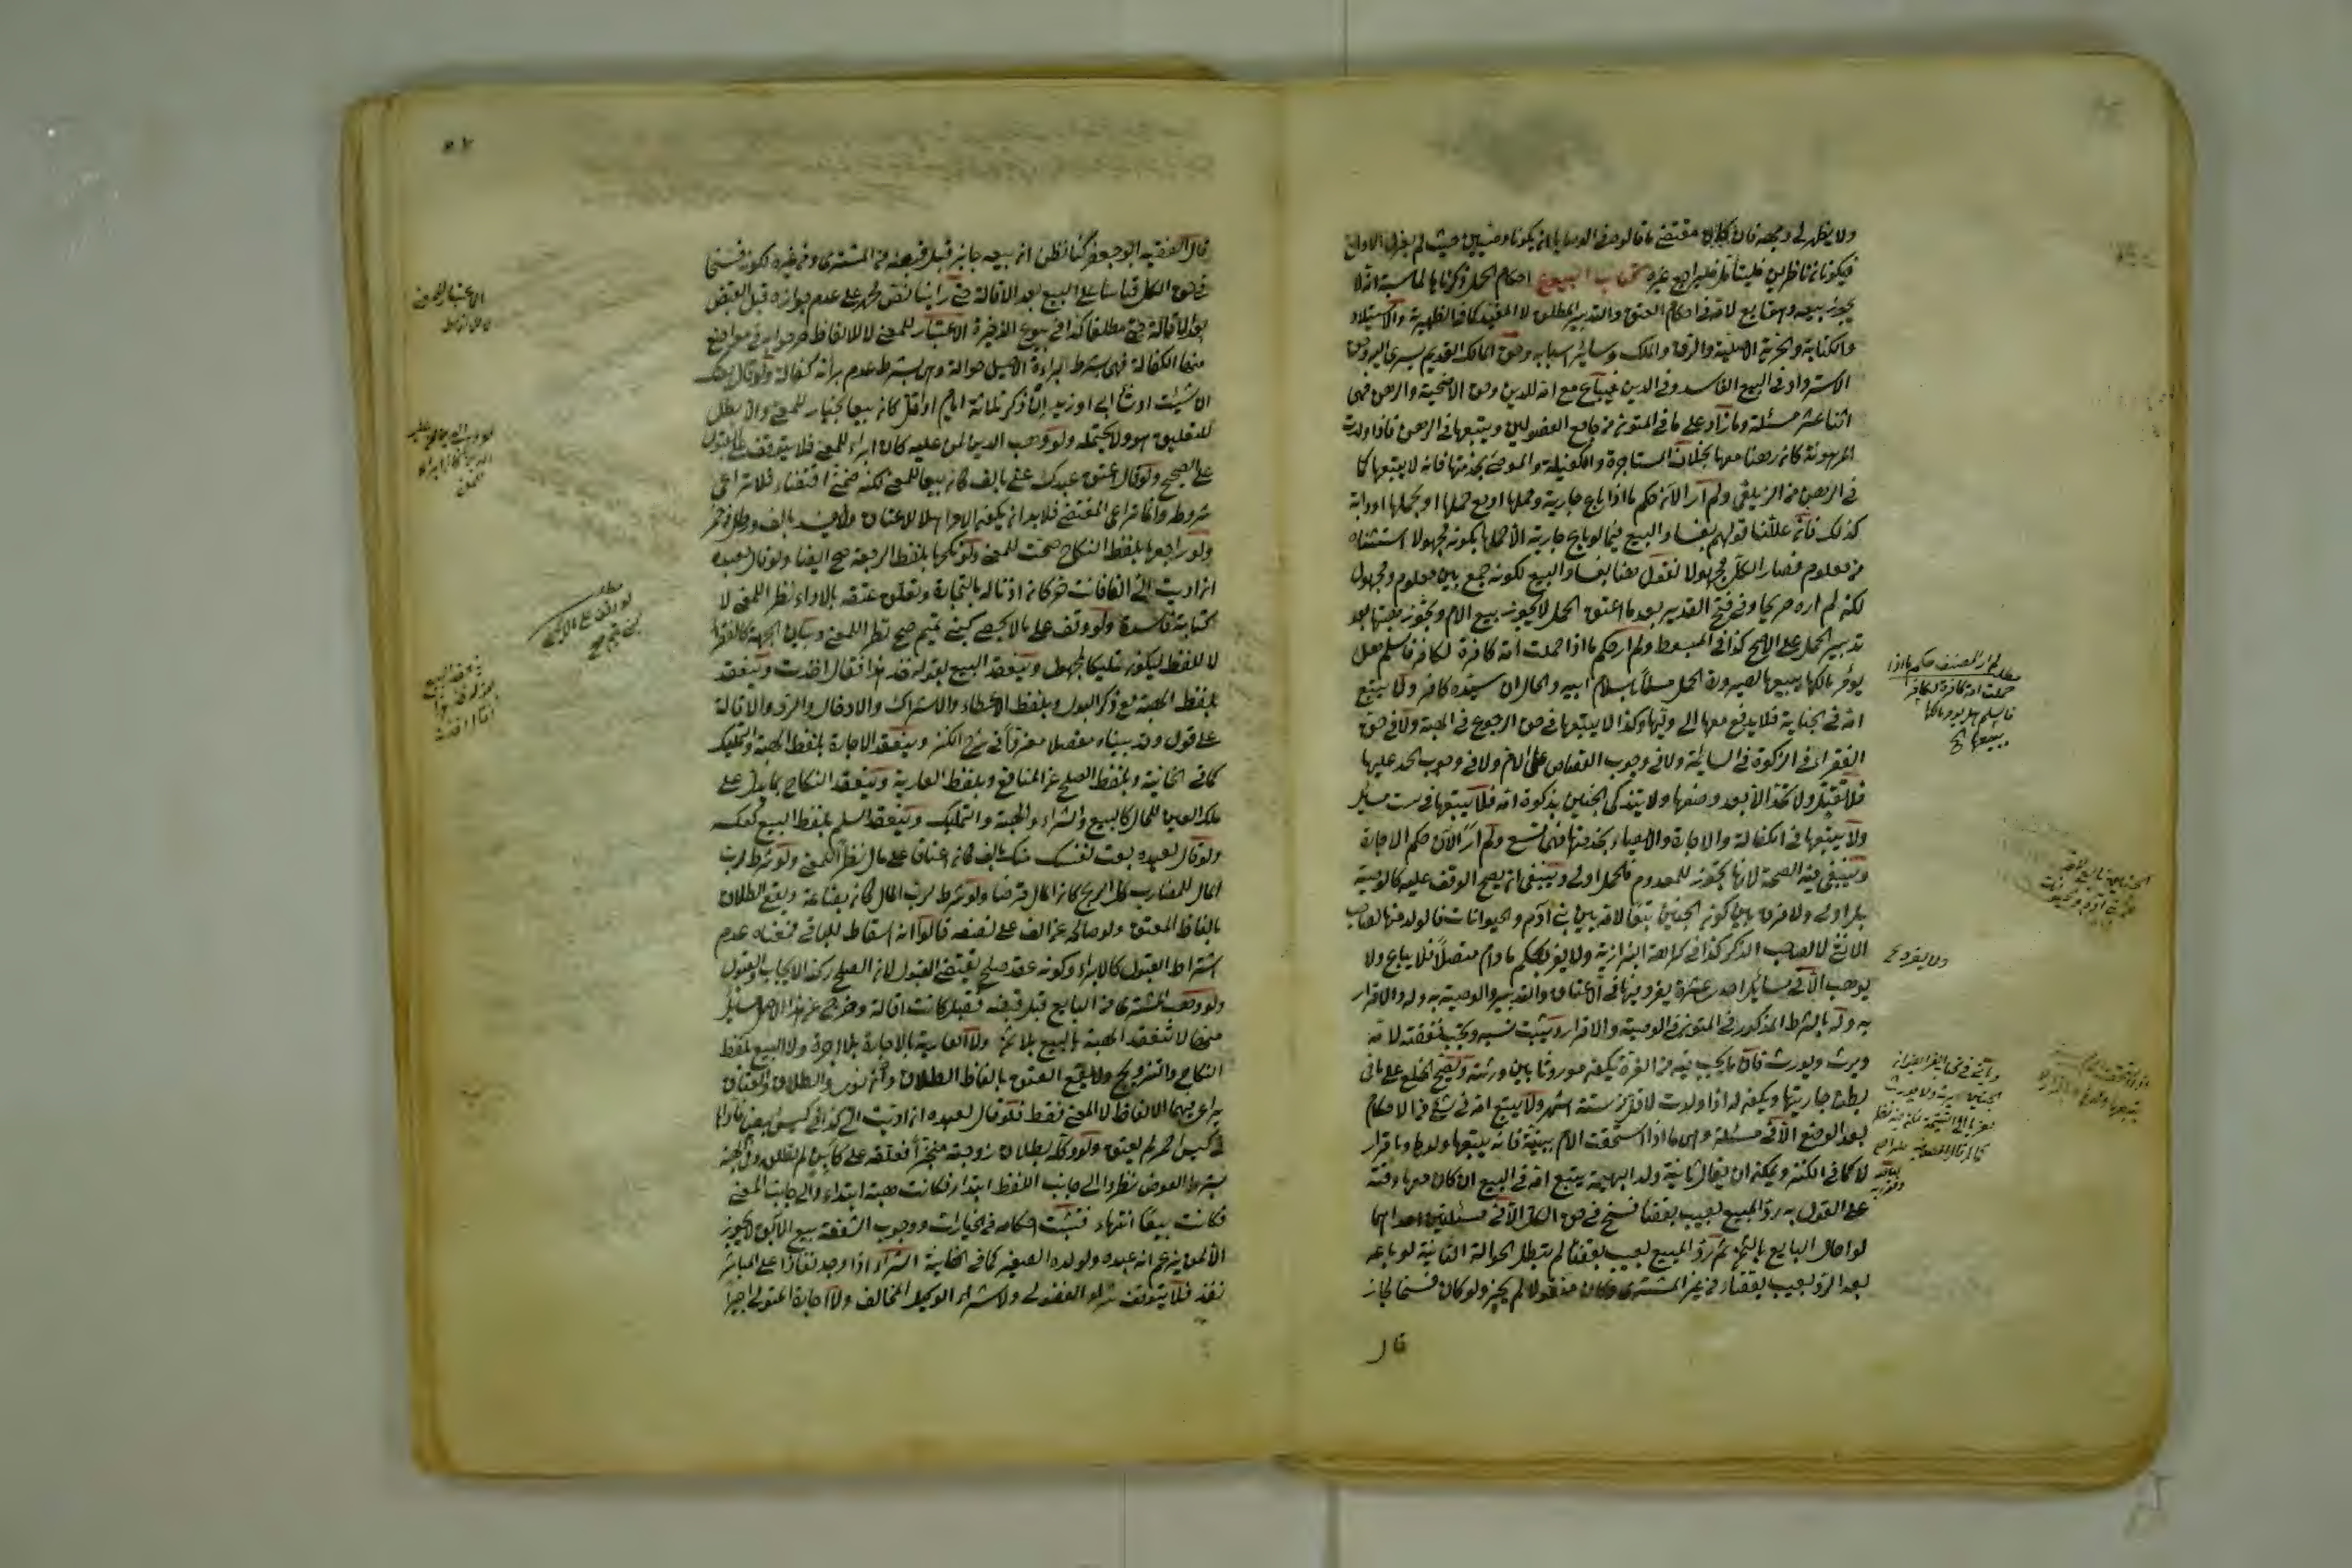 ولا يظهر لي وجهه فان كان مقتضى ما قالوه في الوصايا انه يكونا وصيين حيث لم يعزل الاول
فيكونا ناظرين فليتأمل فليراجع غيره كتاب البيوع احكام الحمل ذكرناها لمناسبة انه لا
يجوز بيعه وهو تابع لامه في احكام العتق والتدبير المطلق لا المقيد كما في الظهيرية والاستيلاد
والكتابة والحرية الاصلية والرق والملك وسائر اسبابه وحق المالك القديم يسري اليه وحق
الاسترداد في البيع الفاسد وفي الدين فيباع مع امه للدين وحق الاضحية والرهن فهي
اثنا عشر مسئلة وما زاد على ما في المتون من جامع الفصولين ويتبعها في الرهن فاذا ولدت
المرهونة كان رهنا معها بخلاف المستاجرة والكفيلة والموصى بخدمتها فانه لا يتبعها كما
في الرهن من الزيلعي ولم ار الآن حكم ما اذا باع جارية وحملها او مع حملها او بحملها او دابة
كذلك فانه عللنا قولهم بفساد البيع فيما لو باع جارية الا حملها بكونه مجهولا استثناه
من معلوم فصار الكل مجهولا نقول هنا بفساد البيع لكونه جمع بين معلوم ومجهول
لكنه لم اره صريحا وفي فتح القدير بعد ما اعتق الحمل لا يجوز بيع الام ويجوز هبتها بعد
تدبير الحمل على الاصح كذا في المبسوط ولم ار حكم ما اذا حملت امة كافرة لكافر فاسلم هل
يؤمر مالكها ببيعها لصيرورة الحمل مسلما باسلام ابيه والحال ان سيده كافر ولا يتبع
امه في الجناية فلا يدفع معها الى وليها وكذا لا يتبعها في حق الرجوع في الهبة ولا في حق
الفقراء في الزكوة في السائمة ولا في وجوب القصاص على الام ولا في وجوب الحد عليها
فلا تقتل ولا تحد الا بعد وضعها ولا يتذكى الجنين بذكوة امه فلا يتبعها في ست مسائل
ولا يتبعها في الكفالة والاجارة والايصاء بخدمتها فهي تسع ولم ار الآن حكم الاجارة
وينبغي فيه الصحة لانها تجوز للمعدوم فالحمل اولى وينبغي ان يصح الوقف عليه كالوصية
بل اولى ولا فرق بين كون الجنين تبعا لامه بين بني آدم والحيوانات فالولد منها لصاحب
الانثى لا لصاحب الذكر كذا في كراهة البزازية ولا يفرد بحكم ما دام متصلا فلا يباع ولا
يوهب الا في مسائل احدى عشرة يفرد فيها في الاعتاق والتدبير والوصية به وله والاقرار
به وله بالشرط المذكور في المتون في الوصية والاقرار ويثبت نسبه وتجب نفقته لامه
ويرث ويورث فان ما يجب فيه من الغرة يكون موروثا بين ورثته وتصح الخلع على ما في
بطن جاريتها ويكون له اذا ولدت لاقل من ستة اشهر ولا يتبع امه في شيء من الاحكام
بعد الوضع الا في مسئلة وهي ما اذا استحقت الام ببينة فانه يتبعها ولدها وباقرار
لا كما في الكنز ويمكن ان يقال ثانية ولد البهيمة يتبع امه في البيع ان كان معها وقته
على القول به رد المبيع بعيب بقضاء فسخ في حق الكل الا في مسئلتين احداهما
لو احال البايع بالثمن ثم رد المبيع بعيب بقضاء لم تبطل الحوالة الثانية لو باعه
بعد الرد بعيب بقضاء من غير المشتري وكان منقولا لم يجز ولو كان فسخا لجاز
قال
مطلب لم ار المصنف حكم ما اذا
حملت امة كافرة لكافر
فاسلم هل يؤمر مالكها
ببيعها
ولا يفرد
قال الفقيه ابو جعفر كنا نظن ان بيعه جايز قبل قبضه من المشتري ومن غيره لكونه فسخا
في حق الكل قياسا على البيع بعد الاقالة حتى راينا نص محمد على عدم جوازه قبل القبض
بعد الاقالة حتى مطلقا كذا في بيوع الذخيرة الاعتبار للمعنى لا للالفاظ صرحوا به في مواضع
منها الكفالة فهي بشرط البراءة الاصيل حوالة وهي بشرط عدم براته كفالة ولو قال بعتك
ان شئت او شاء ابي او زيد ان ذكر ثلاثة ايام او اقل كان بيعا بخيار للمعنى والا بطل
للتعليق وهو لا يحتمله ولو وهب الدين لمن عليه كان ابراء للمعنى فلا يتوقف على القبول
على الصحيح ولو قال اعتق عبدك عني بالف كان بيعا للمعنى لكنه ضمني اقتضاء فلا تراعى
شروطه وانما تراعى المقتضى فلا بد ان يكون الامر اهلا للاعتاق
ولو راجعها بلفظ النكاح صحت للمعنى ولو نكحها بلفظ الرجعة صح ايضا ولو قال لعبده
ان اديت الي الفا فانت حر كان اذنا له بالتجارة وتعلق عتقه بالاداء نظرا للمعنى لا
كتابة فاسدة ولو وقف على ما لا يحصى كبني تميم صح نظرا للمعنى وبيان الجهة كالفقراء
لا للفظ ليكون تمليكا لمجهول وينعقد البيع بقوله خذ هذا فقال اخذت وينعقد
بلفظ الهبة مع ذكر البدل وبلفظ الاعطاء والاشتراك والادخال والرد والاقالة
على قول وقد بيناه مفصلا معزوا في شرح الكنز وينعقد الاجارة بلفظ الهبة والتمليك
كما في الخانية وبلفظ الصلح عن المنافع وبلفظ العارية وينعقد النكاح بما يدل على
ملك العين للحال كالبيع والشراء والهبة والتمليك وينعقد السلم بلفظ البيع كعكسه
ولو قال لعبده بعت نفسك منك بالف كان اعتاقا على مال نظرا للمعنى ولو شرط رب
المال للمضارب كل الربح كان المال قرضا ولو شرط لرب المال كان بضاعة ويقع الطلاق
بالفاظ العتق ولو صالحه عن الف على نصفه قالوا انه اسقاط للباقي فمقتضاه عدم
اشتراط القبول كالابراء وكونه عقد صلح يقتضي القبول لان الصلح ركنه الايجاب والقبول
ولو وهب المشتري من البايع قبل قبضه فقبل كانت اقالة وخرج عن هذا الاصل مسائل
منها لا تنعقد الهبة بالبيع بلا ثمن ولا العارية بالاجارة بلا اجرة ولا البيع بلفظ
النكاح والتزويج ولا يقع العتق بالفاظ الطلاق وان نوى والطلاق والعتاق
يراعى فيهما الالفاظ لا المعنى فقط فلو قال لعبده ان اديت الي كذا في كيس ابيض فاداها
في كيس احمر لم يعتق ولو وكله بطلاق زوجته منجزا فعلقه على كائن لم تطلق وفي الهبة
بشرط العوض نظروا الى جانب اللفظ ابتداء فكانت هبة ابتداء والى جانب المعنى
فكانت بيعا انتهاء فتثبت احكامه من الخيارات ووجوب الشفعة بيع الآبق لا يجوز
الا لمن يزعم انه عنده ولولده الصغير كما في الخانية الشراء اذا وجد نفاذا على المباشر
نفذ فلا يتوقف شراء الفضولي ولا شراء الوكيل المخالف ولا اجارة المتولي اجيرا
الاعتبار للمعنى
لا للالفاظ
مطلب
لو وقف على ما لا يحصى
كبني تميم صح